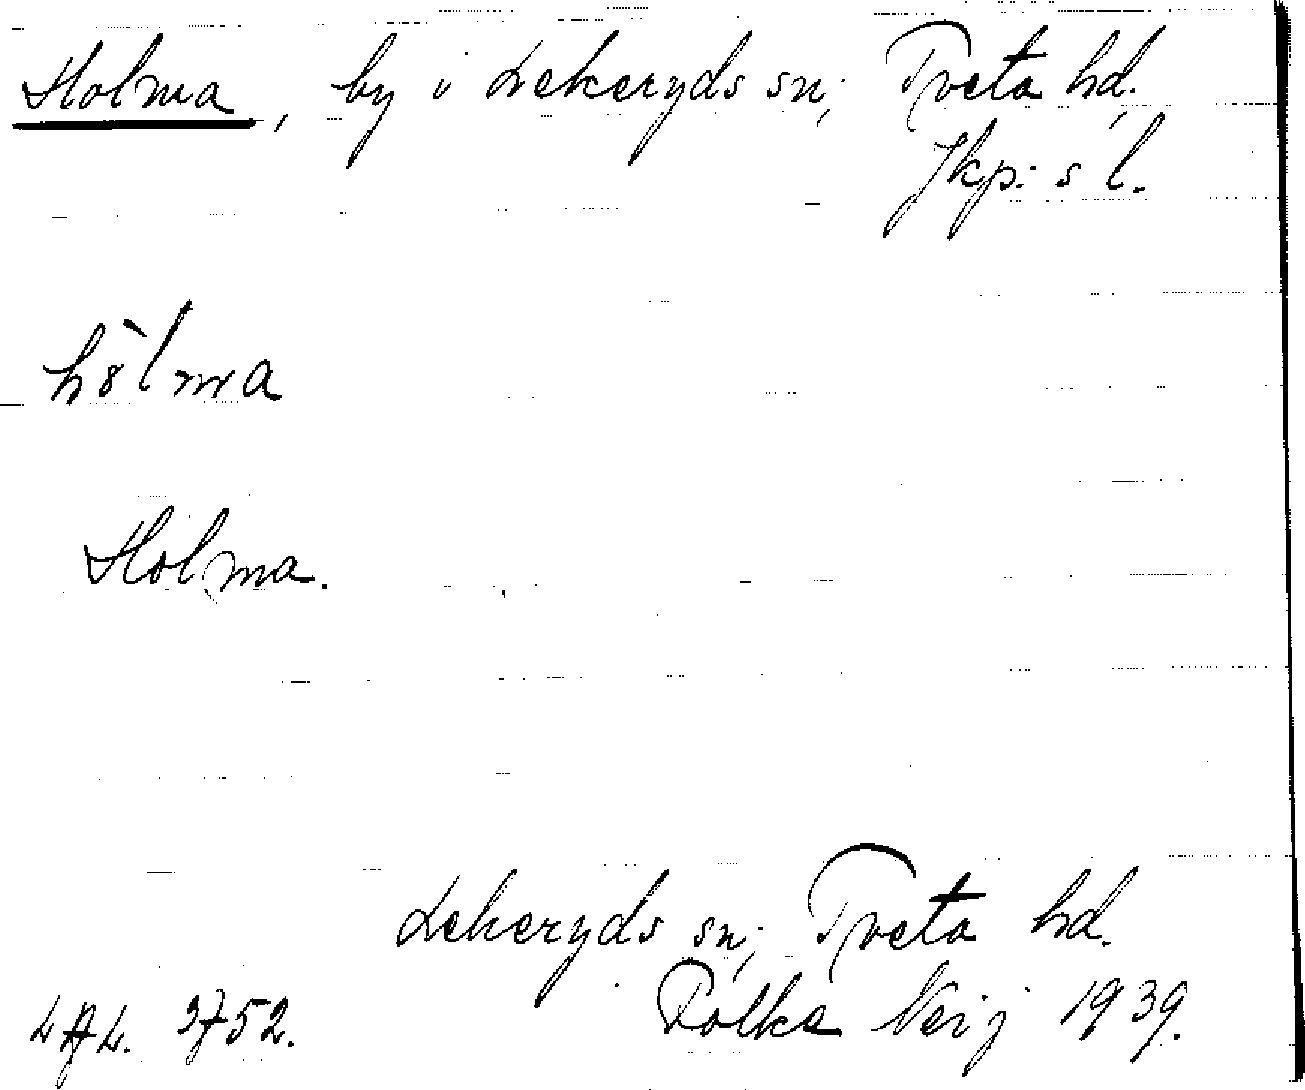 Holma, by i Lekeryds sn; Tveta hd.
Jkp:s l.
hòlma
Holma.
Lekeryds sn; Tveta hd.
LAL. 3752. Folke Neij 1939.